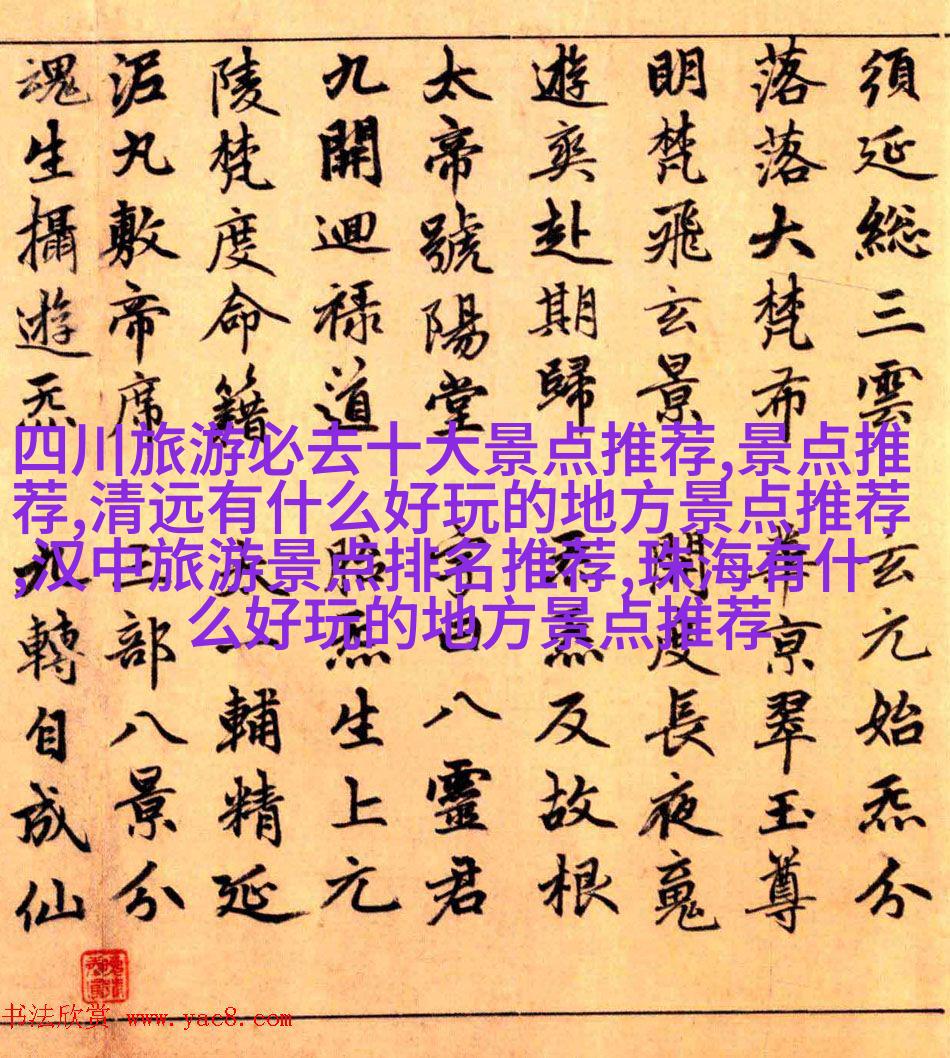 須延総三雲玄元始炁分
落落大梵布京翠玉尊
明梵飛玄景開度長夜魂
遊爽赴期歸炁反故根
太帝號陽堂字八靈君
九開迴禄道炁生上元
陵梵度命籍一輔精延
泥丸敷帝席三部八景分
魂生攝遊炁九轉自成仙
四川旅游必去十大景点推荐,景点推
荐,清远有什么好玩的地方景点推荐
,汉中旅游景点排名推荐,珠海有什
么好玩的地方景点推荐
书法欣赏 www.yac8.com